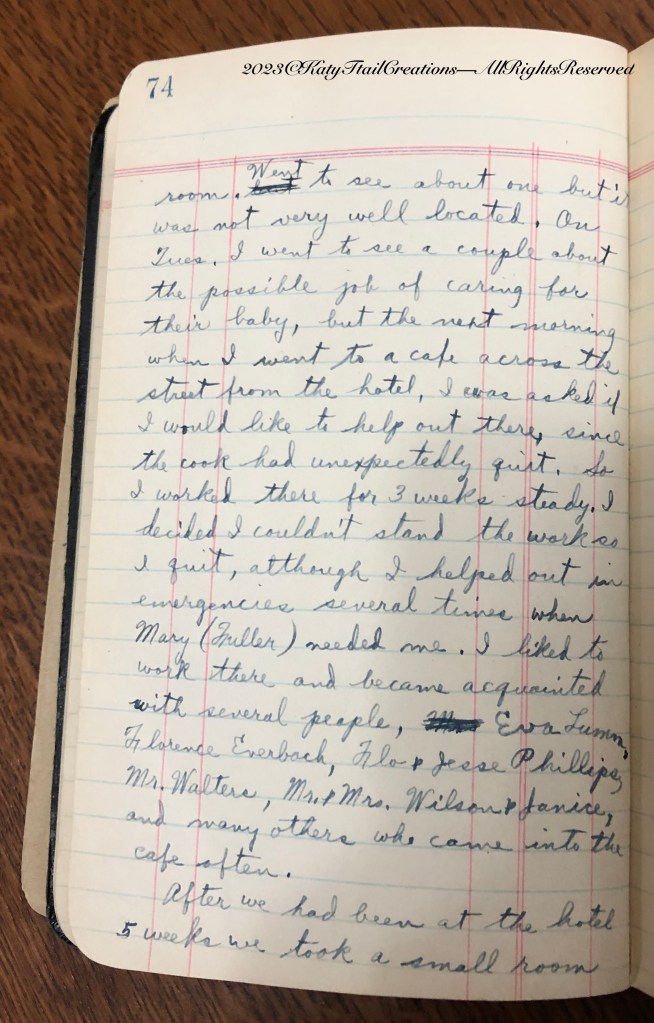 2023©KatyTrailCreations—AllRightsReserved
74
Went
room. to see about one but it
was not very well located. On
Tues. I went to see a couple about
the possible job of caring for
their baby, but the next morning
when I went to a cafe across the
street from the hotel, I was asked if
I would like to help out there, since
the cook had unexpectedly quit. So
I worked there for 3 weeks steady. I
decided I couldn't stand the work so
I quit, although I helped out in
emergencies several times when
Mary (Fuller) needed me. I liked to
work there and became acquainted
with several people, Eva Lumm,
Florence Everbach, Flo & Jesse Phillips,
Mr. Walters, Mr. & Mrs. Wilson & Janice,
and many others who came into the
cafe often.
After we had been at the hotel
5 weeks we took a small room